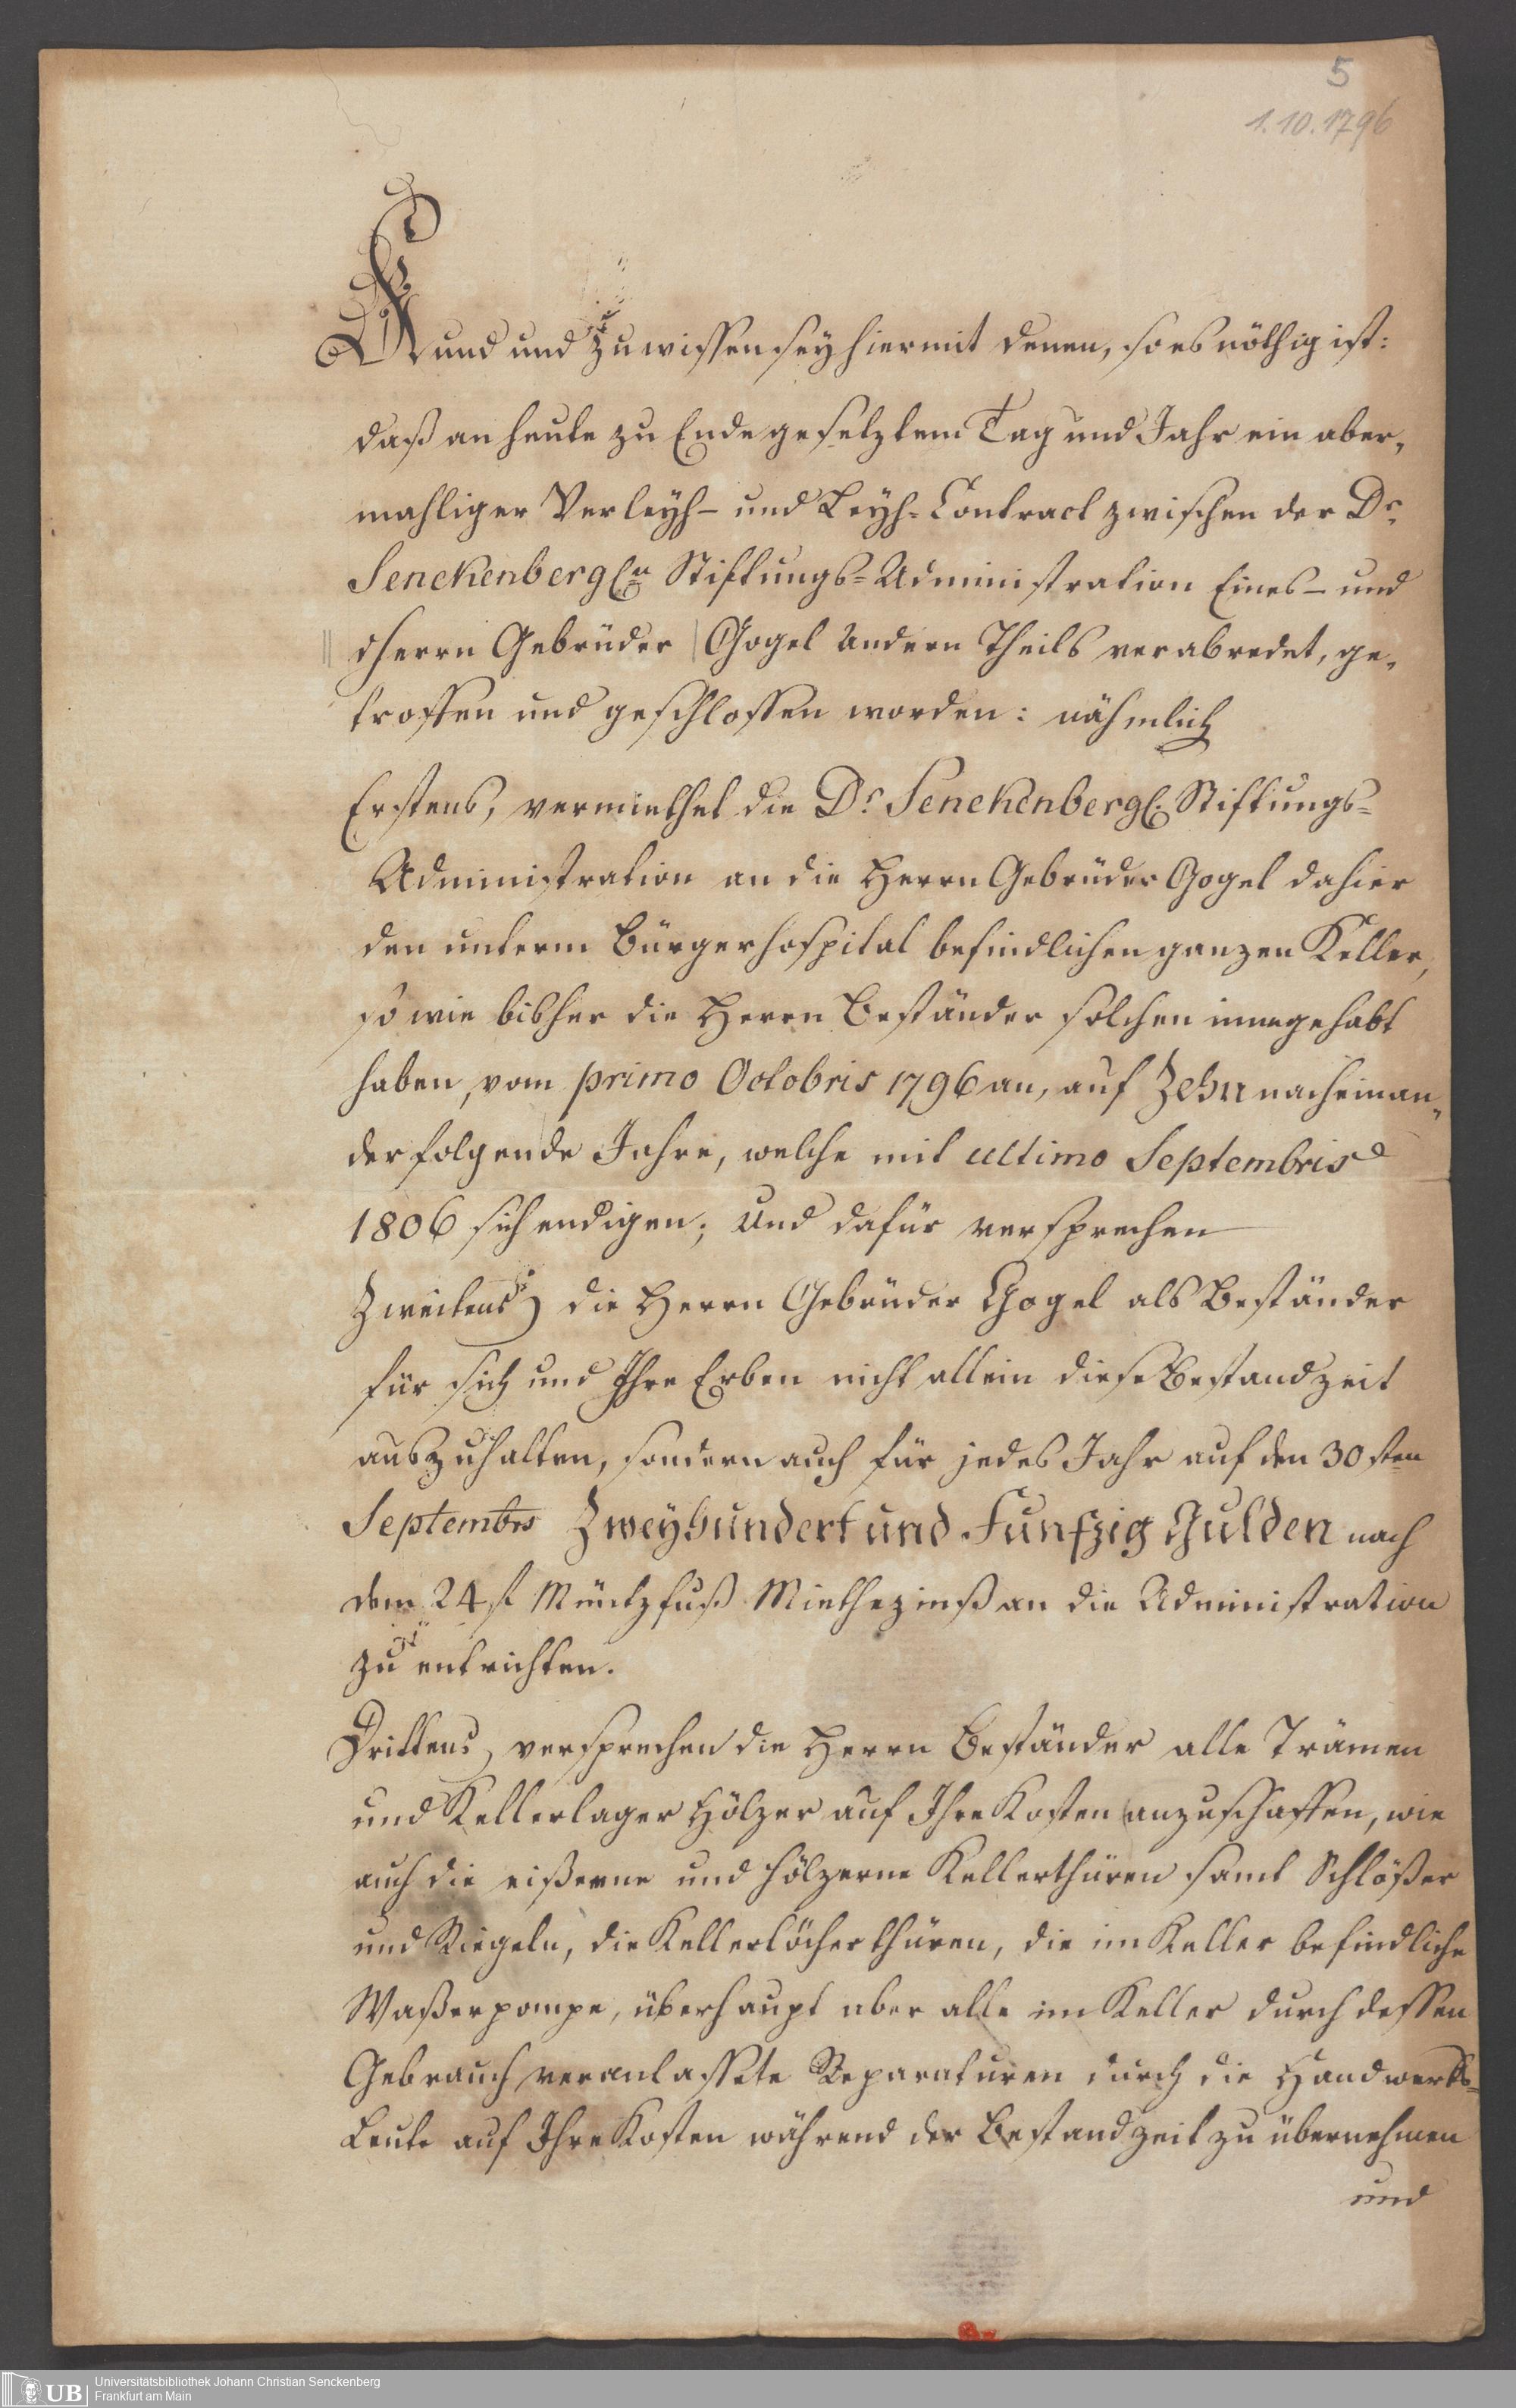 5
1.10.1796
Kund und zu wissen sey hiermit denen, so es nöthig ist:
daß an heute zu Ende gesetztem Tag und Jahr ein aber,
mahliger Verleyh- und Leyh-Contract zwischen der Dr.
Senckenbergln Stiftungs-Administration Eines- und
Herrn Gebrüder Gogel Andern Theils verabredet, ge,
troffen und geschlossen worden: nähmlich
Erstens, vermiethet die Dr Senckenbergl. Stiftungs-
Administration an die Herrn Gebrüder Gogel dahier
den unterm Bürgerhospital befindlichen ganzen Keller,
so wie bisher die Herrn Beständer solchen innegehabt
haben, vom primo Octobris 1796 an, auf Zehn nacheinan,
der folgende Jahre, welche mit ultimo Septembris
1806 sich endigen; Und dafür versprechen
Zweitens die Herrn Gebrüder Gogel als Beständer
für sich und Ihre Erben nicht allein diese Bestandzeit
auszuhalten, sondern auch für jedes Jahr auf den 30sten
Septembrs Zweyhundert und Funfzig Gulden nach
dem 24 fl Müntzfuß Miethezinß an die Administration
zu entrichten.
Drittens, versprechen die Herrn Beständer alle Trämen
und Kellerlager Hölzer auf Ihre Kosten anzuschaffen, wie
auch die eißerne und hölzerne Kellerthüren samt Schlößer
und Riegeln, die Kellerlöcher thüren, die im Keller befindliche
Waßerpompe, überhaupt aber alle im Keller durch dessen
Gebrauch veranlaßete Reparaturen durch die Handwerks-
Leute auf Ihre Kosten während der Bestandzeit zu übernehmen
und
UB
Universitätsbibliothek Johann Christian Senckenberg
Frankfurt am Main